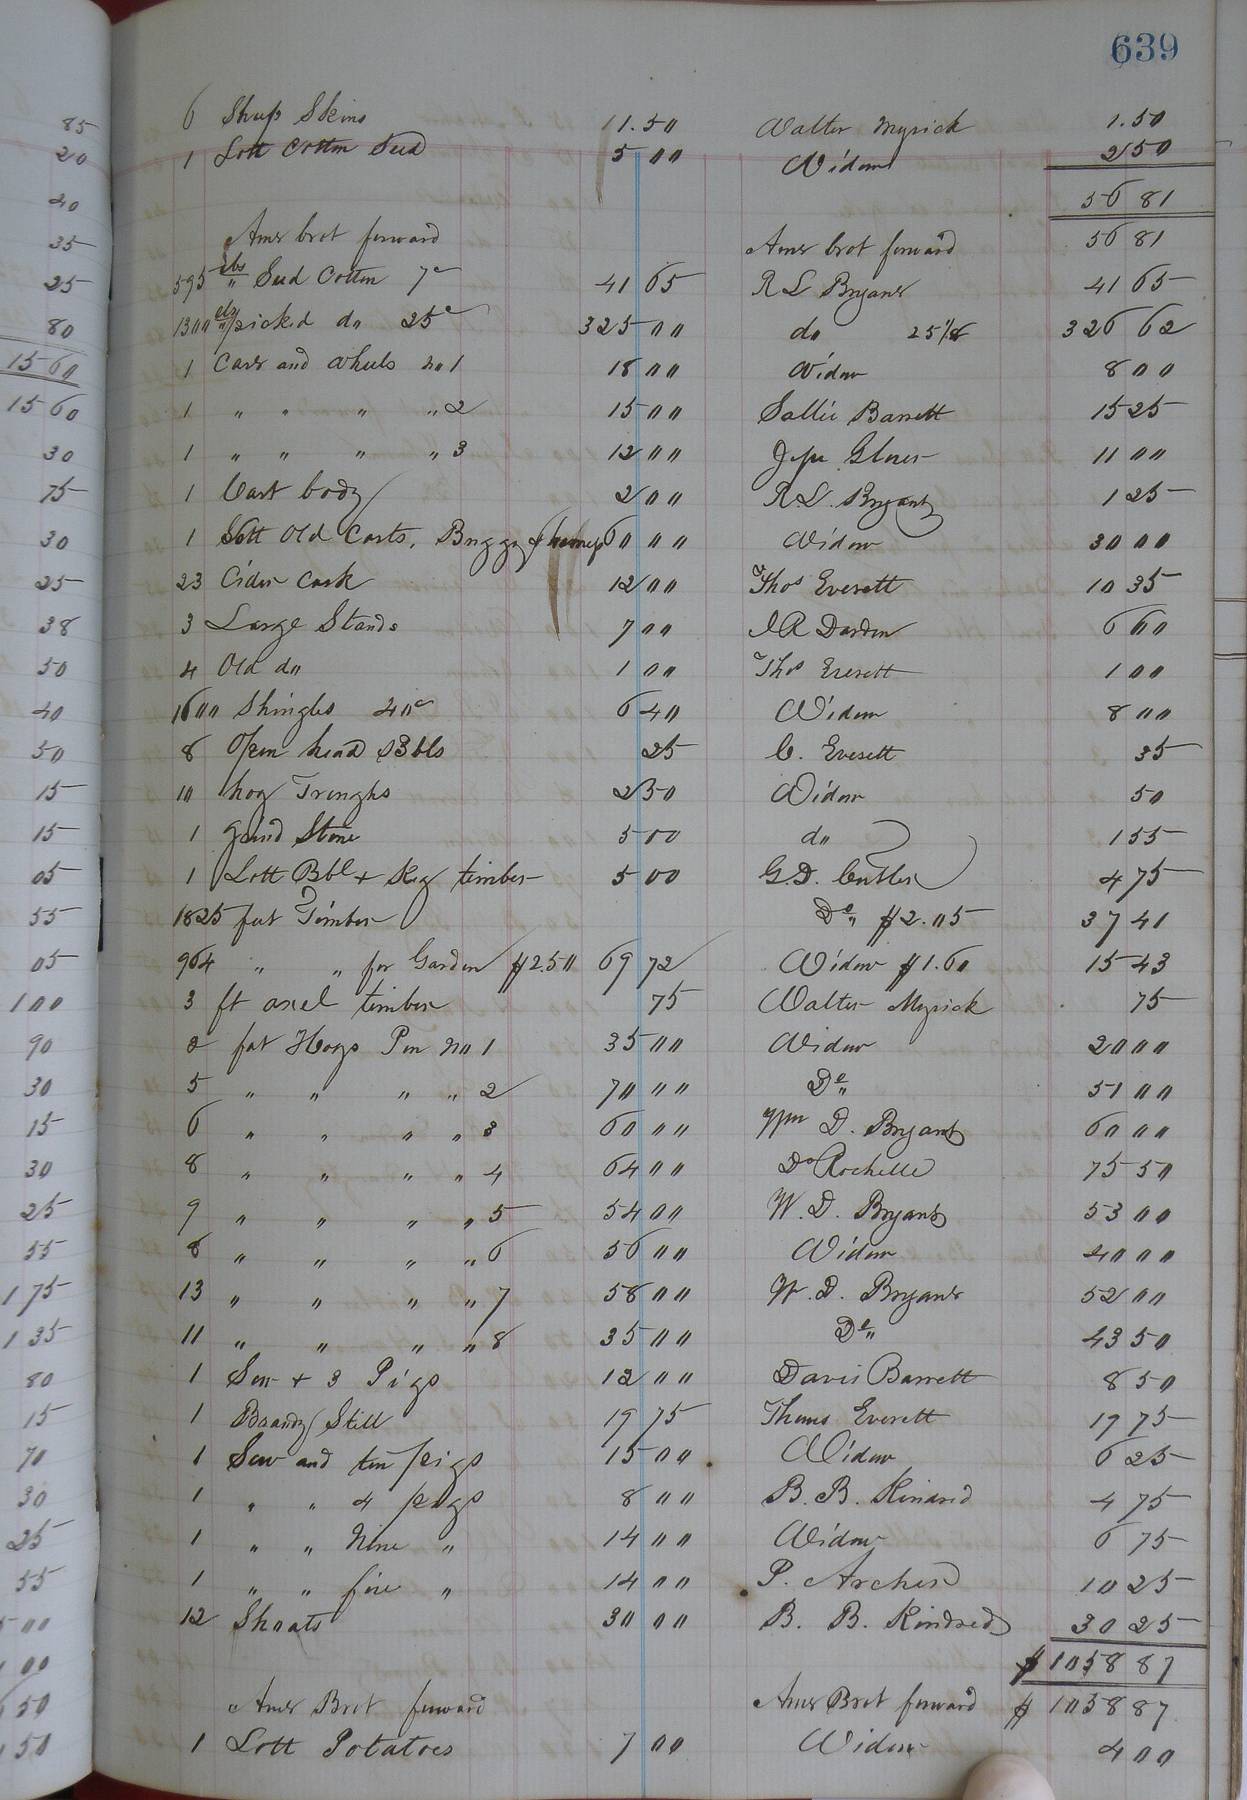 639
6 Sheep Skins 1.50 Walter Myrick 1.50
1 Lott Cotton Seed 5 00 Widow 2 50
56 81
Amt brot forward Amt brot forward 56 81
595 lbs Seed Cotton 7c 41 65 R L Bryant 41 65
1300 lbs picked do 25c 325 00 do 25 1/8 326 62
1 Cart and Wheels No 1 18 00 Widow 8 00
1 " " " " 2 15 00 Sallie Barrett 15 25
1 " " " " 3 12 00 Glover 11 00
1 Cart body 2 00 R. L. Bryant 1 25
1 Lott Old Carts, Buggy & 60 00 Widow 30 00
23 Cider Cask 12 00 Thos Everett 10 35
3 Large Stands 7 00 J R Darden 6 60
4 Old do 1 00 Thos Everett 1 00
1600 Shingles 40c 6 40 Widow 8 00
8 Open head Bbls 25 C. Everett 35
10 hog Troughs 2 50 Widow 50
1 Grind Stone 5 00 do 1 55
1 Lott Bbl & Keg timber 5 00 G. D. Butler 4 75
1825 feet Timber Do $2.05 37 41
964 " " for Garden $2.50 69 72 Widow $1.60 15 43
3 ft axel timber 75 Walter Myrick 75
fat Hogs Pen No 1 35 00 Widow 20 00
5 " " " " 2 70 00 Do 51 00
6 " " " " 3 60 00 Wm D. Bryant 60 00
8 " " " " 4 64 00 Rochelle 75 50
9 " " " " 5 54 00 W. D. Bryant 53 00
8 " " " " 6 56 00 Widow 40 00
13 " " " " 7 58 00 W. D. Bryant 52 00
11 " " " " 8 35 00 Do 43 50
1 Sow & 3 Pigs 12 00 Davis Barrett 8 50
1 Brandy Still 19 75 Thoms Everett 19 75
1 Sow and ten pigs 15 00 Widow 6 25
1 " " 4 pigs 8 00 B. B. Kindred 4 75
1 " " Nine " 14 00 Widow 6 75
1 " " five " 14 00 P. Archer 10 25
12 Shoats 30 00 B. B. Kindred 30 25
$ 1058 87
Amt Brot forward Amt Brot forward $ 1058 87
1 Lott Potatoes 7 00 Widow 4 00
85
20
40
35
25
80
15 60
15 60
30
75
30
25
38
50
40
50
15
15
05
55
05
1 00
90
30
15
30
25
55
1 75
1 35
80
15
70
30
25
55
00
00
50
50